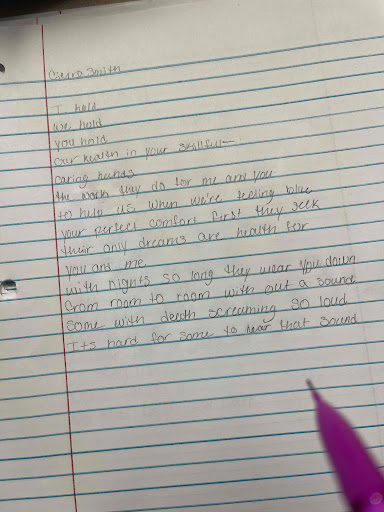 Cierra Smith
I hold
we hold
you hold
our health in your skillful—
caring hands
the work they do for me and you
to help us when we're feeling blue
your perfect comfort first they seek
their only dreams are health for
you and me
with nights so long they wear you down
from room to room with out a sound
some with death screaming so loud
Its hard for some to hear that sound